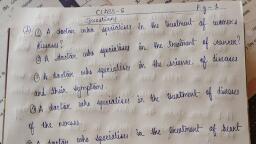 Class-5 Pg-1
Questions
① A doctor who specialises in the treatment of women's
diseases?
② A doctor who specialises in the treatment of cancer?
③ A doctor who specialises in the science of diseases
and their symptoms
④ A doctor who specialises in the treatment of diseases
of the nerves.
A doctor who specialises in the treatment of heart